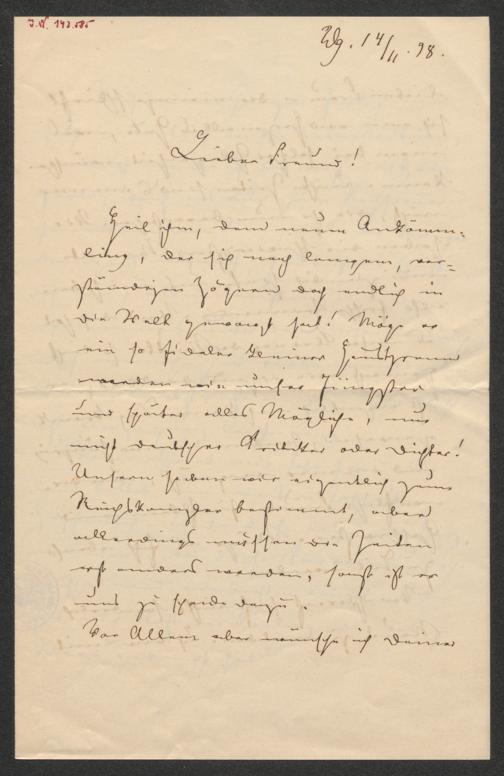 I.N. 143.585
14/11. 98.
Lieber Freund!
Heil ihm, dem neuen Ankömm-
ling, der sich nach langem, ver-
ständigen Zögern doch endlich in
die Welt gewagt hat! Möge er
ein so fideler kleiner Haustyrann
werden wie unser Jüngster
und später alles Mögliche, nur
nicht deutscher Kritiker oder Dichter!
Unsern haben wir eigentlich zum
Reichskanzler bestimmt, aber
allerdings müssen die Zeiten
erst anders werden, sonst ist er
uns zu schade dazu.
Vor Allem aber wünsche ich Deiner